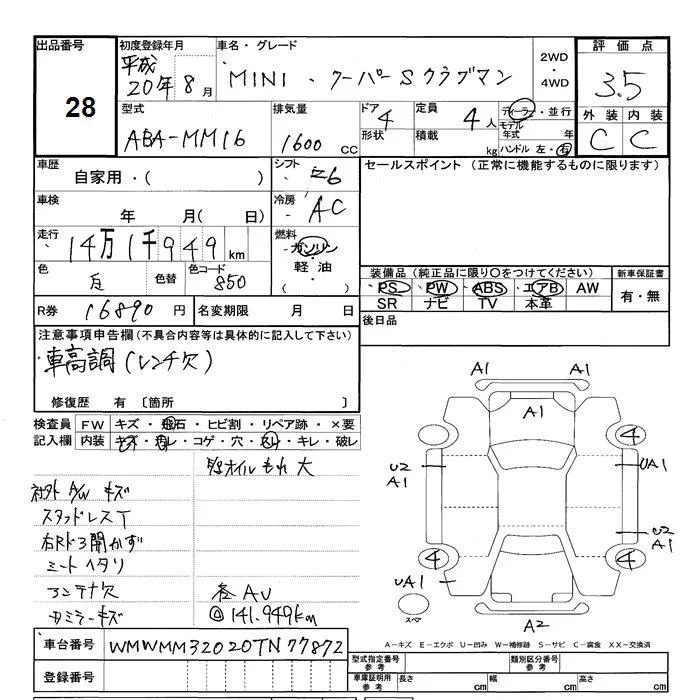 出品番号 28
初度登録年月 平成 20年 8月
車名・グレード MINI ・ クーパーSクラブマン
2WD ・ 4WD
評価点 3.5
型式 ABA-MM16
排気量 1600 CC
ドア 4
形状
定員 4人
積載 kg
ディーラー・並行
モデル年式 年
ハンドル 左・右
外装 内装
C C
車歴 自家用・( )
シフト
車検 年 月( 日)
冷房 AC
走行 14万1千949km
燃料 ガソリン・軽油・( )
色 白 色替 色コード 850
R券 16890円 名変期限 月 日
セールスポイント (正常に機能するものに限ります)
装備品 (純正品に限り○をつけてください)
PS・PW・ABS・エアB・AW
SR ナビ TV 本革
新車保証書
有・無
後日品
注意事項申告欄(不具合内容等は具体的に記入して下さい)
車高調(レンチ欠)
修復歴 有〔箇所 〕
検査員 FW キズ・飛石・ヒビ割・リペア跡・×要
記入欄 内装 キズ・汚レ・コゲ・穴・スレ・キレ・破レ
オイルもれ大
社外A/Wキズ
スタッドレスT
右Rドア開かず
シートヘタリ
アンテナ欠
ミラーキズ
AU
141.949km
A1
A1
A1
4
U2
A1
UA1
U2
A1
4
4
UA1
スペア
A2
A-キズ E-エクボ U-凹み W-補修跡 S-サビ C-腐食 XX-交換済
車台番号 WMWMM32020TN77872
登録番号
型式指定番号 参考
類別区分番号 参考
車庫証明用 参考 長さ cm 幅 cm 高さ cm